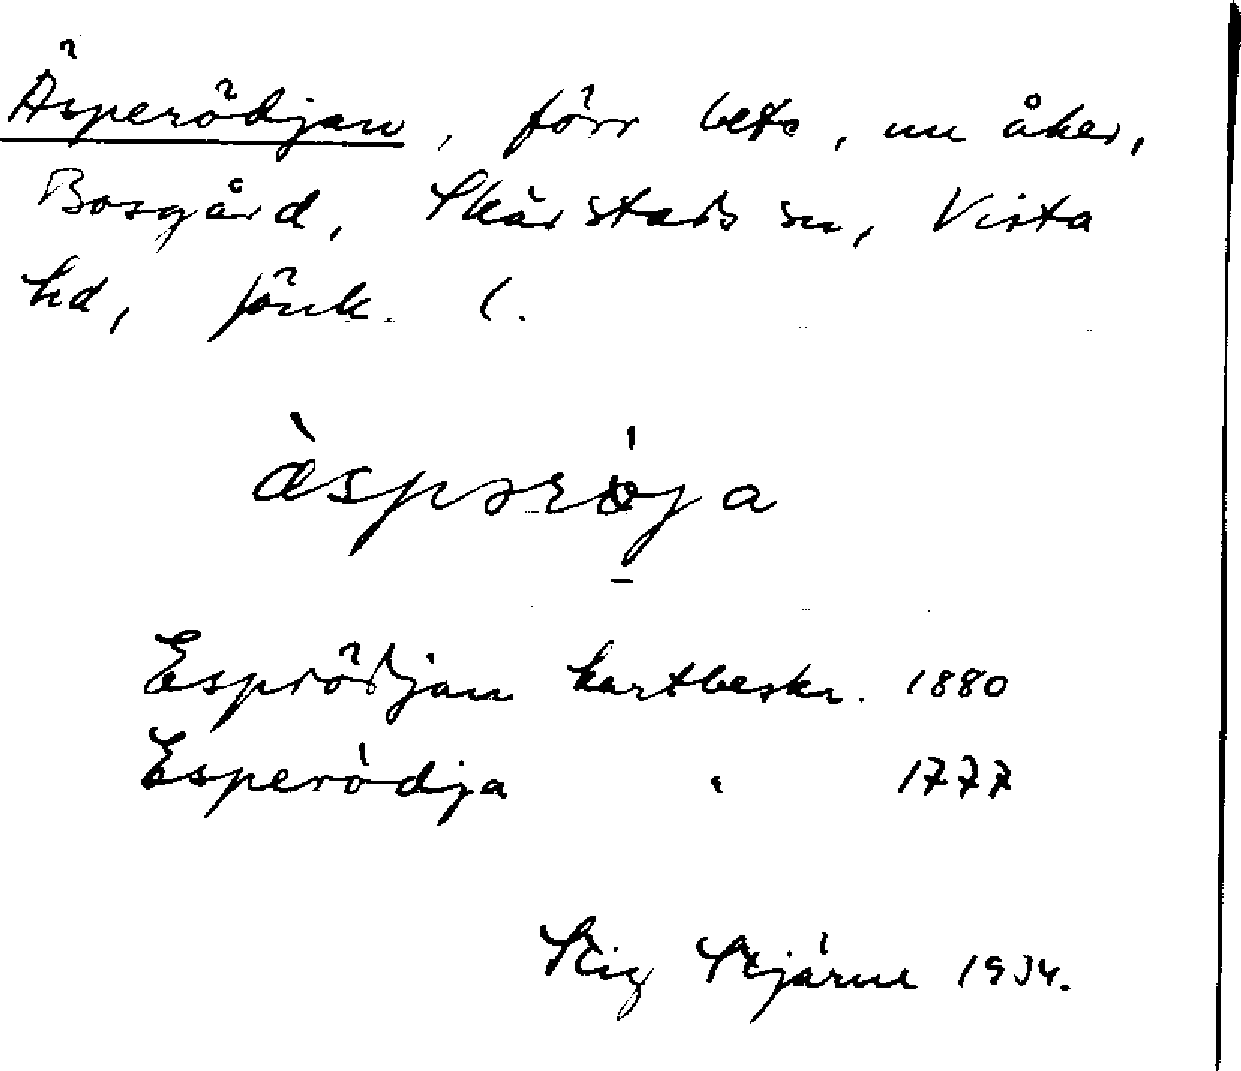 Äsperödjan, förr bete, nu åker,
Bosgård, Skärstads sn, Vista
hd, Jönk. l.
æ̀spərøja
Esprödjan kartbeskr. 1880
Esperödja " 1777
Stig Stjärne 1934.